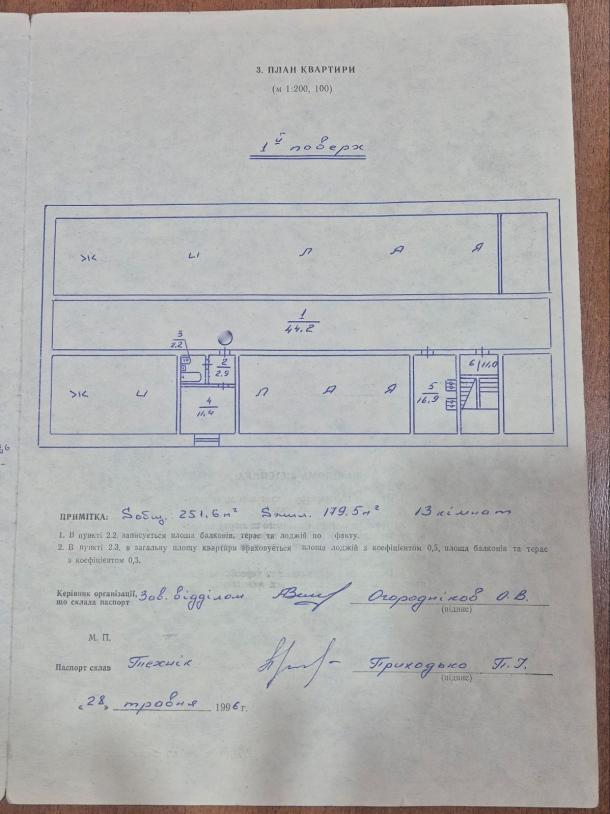 3. ПЛАН КВАРТИРИ
(м 1:200, 100)
1й поверх
Ж И Л А Я
1
44.2
3
2.2
2
2.9
Ж И Л А Я
4
11,4
5
16,9
6 11,0
ПРИМІТКА: Sобщ. 251.6 м² Sжил. 179.5 м² 13 кімнат
1. В пункті 2.2. записується площа балконів, терас та лоджій по факту.
2. В пункті 2.3. в загальну площу квартири враховується площа лоджій з коефіцієнтом 0,5, площа балконів та терас
з коефіцієнтом 0,3.
Керівник організації,
що склала паспорт
Зав. відділом
Огородніков О. В.
(підпис)
М. П.
Паспорт склав Технік Приходько П. Г.
(підпис)
«28» травня 1996 г.